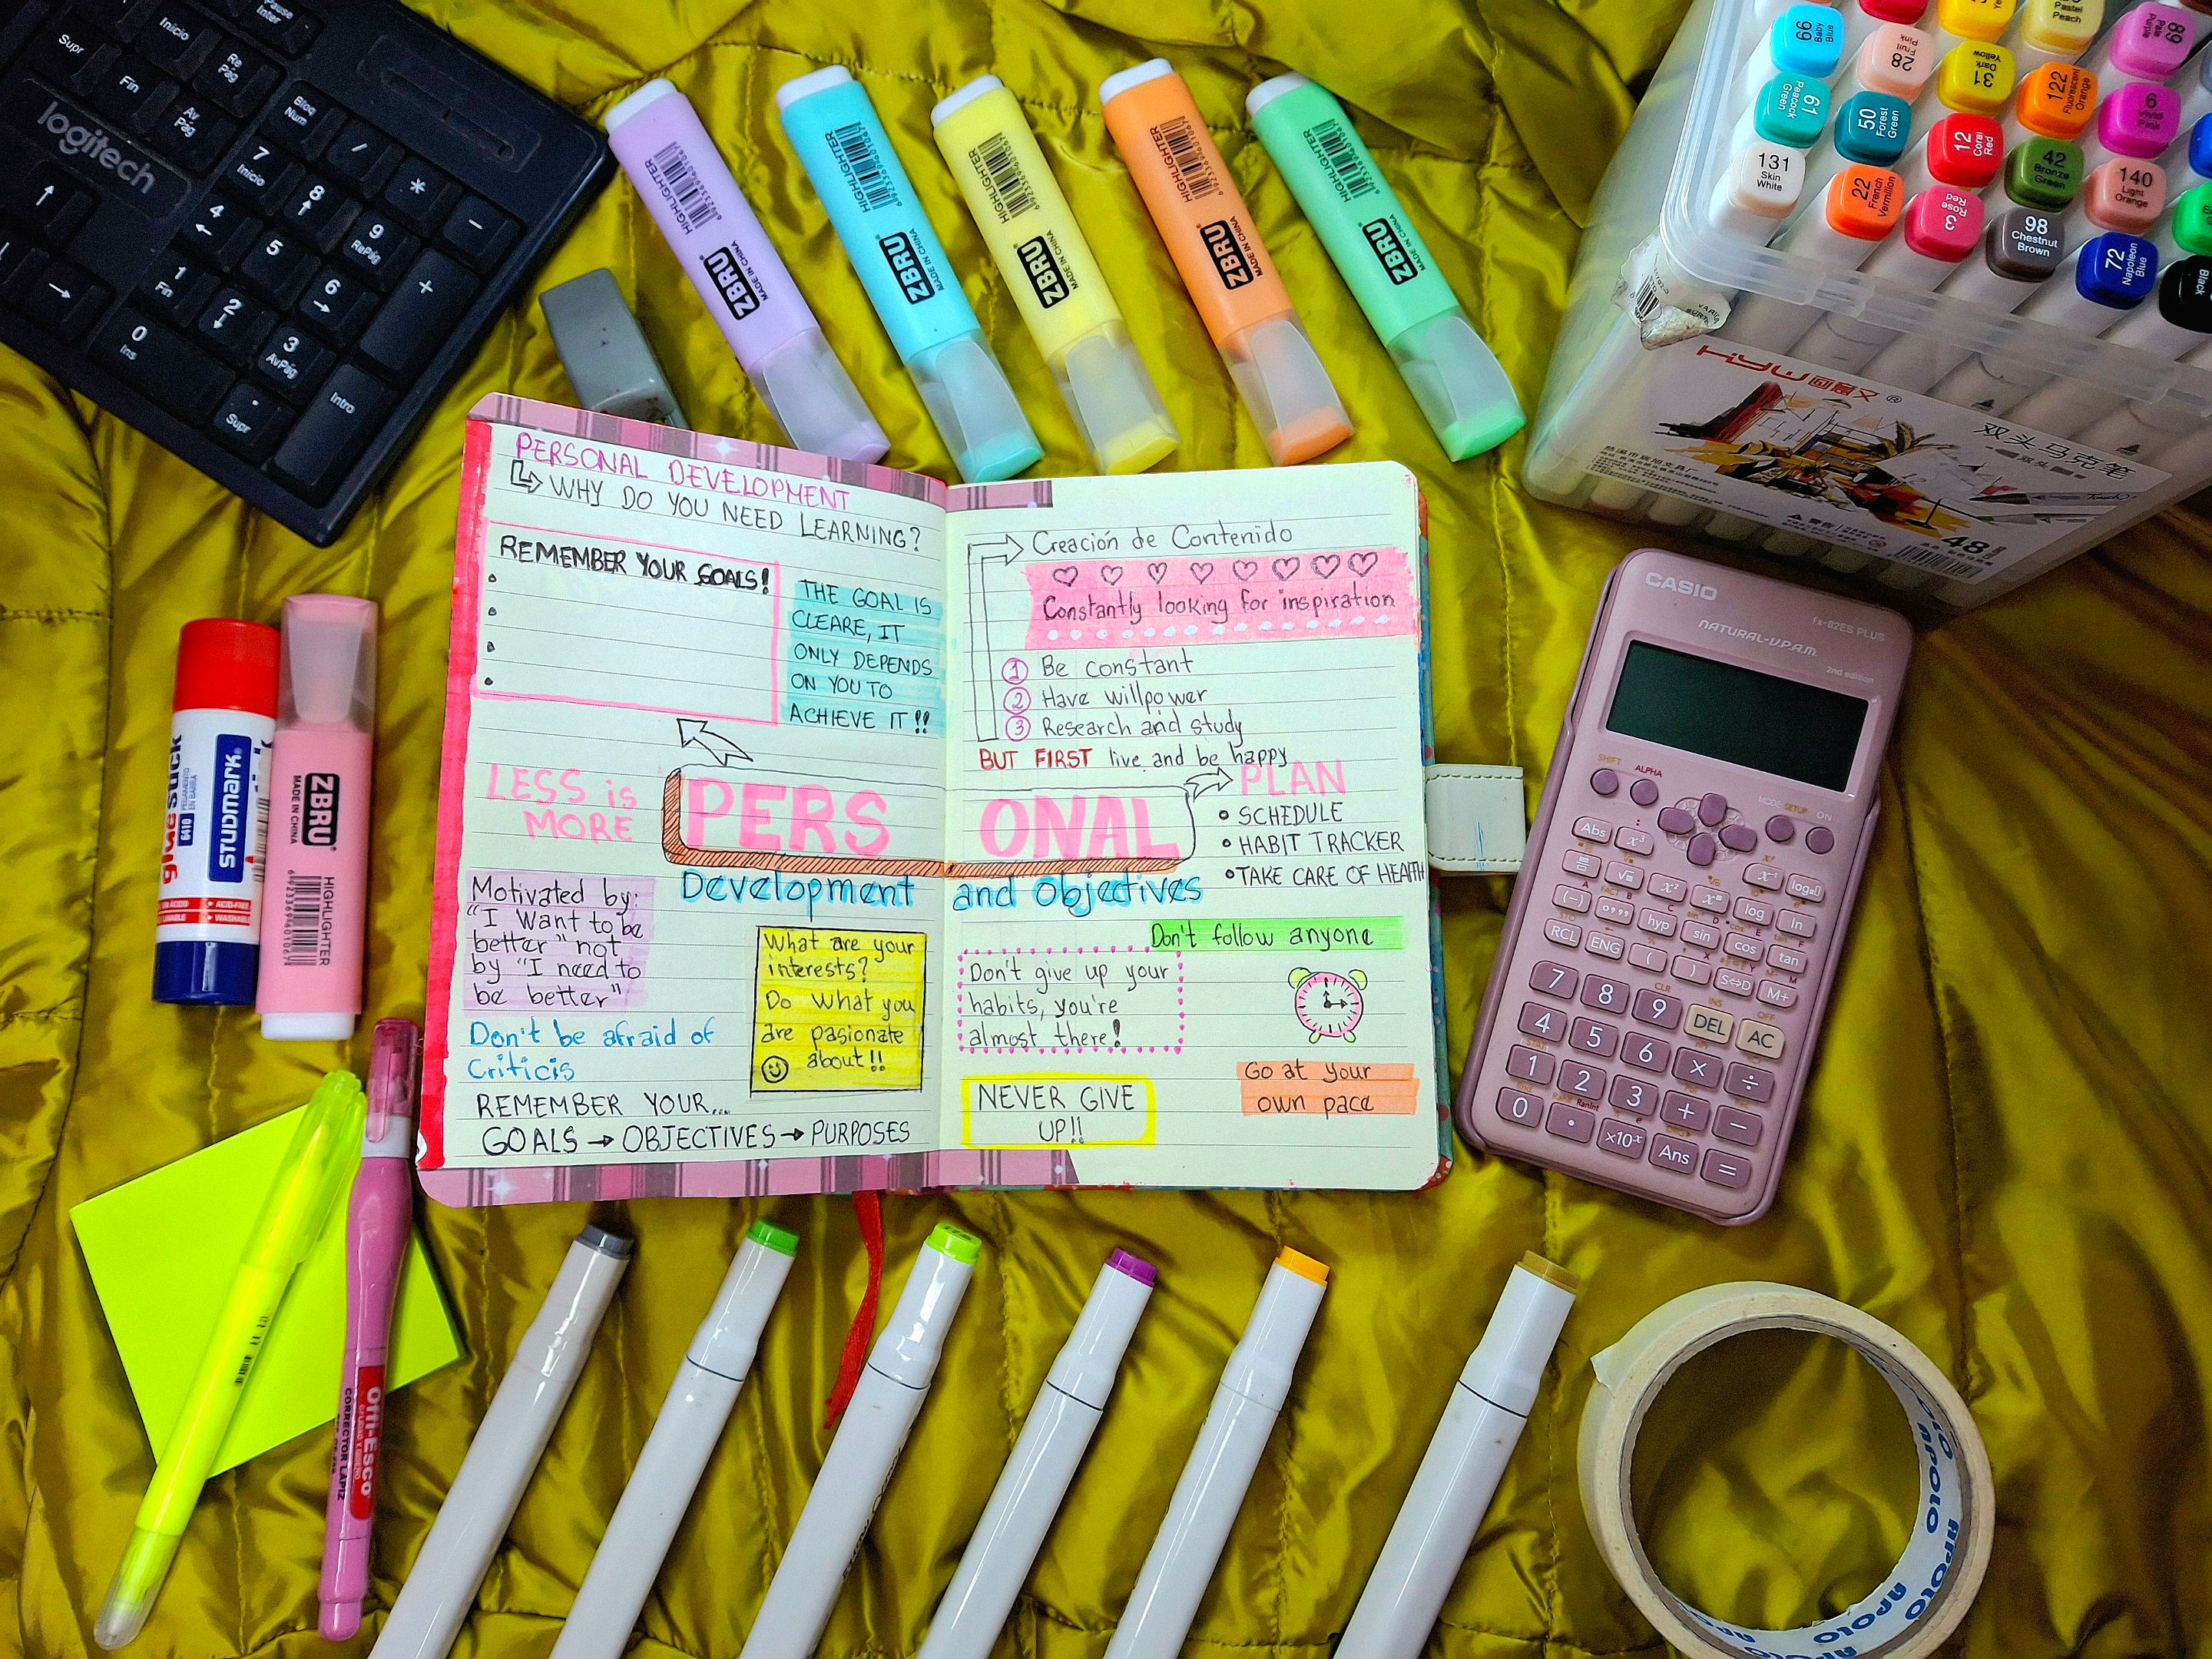 PERSONAL DEVELOPMENT
WHY DO YOU NEED LEARNING?
REMEMBER YOUR GOALS!
THE GOAL IS
CLEARE, IT
ONLY DEPENDS
ON YOU TO
ACHIEVE IT!!
LESS is
MORE
PERS
Development
Motivated by:
"I Want to be
better" not
by "I need to
be better"
Don't be afraid of
Criticis
What are your
interests?
Do what you
are pasionate
about!!
REMEMBER YOUR...
GOALS → OBJECTIVES → PURPOSES
Creación de Contenido
Constantly looking for inspiration
1 Be constant
2 Have willpower
3 Research and study
BUT FIRST live and be happy
ONAL
and Objectives
PLAN
• SCHEDULE
• HABIT TRACKER
• TAKE CARE OF HEALTH
Don't follow anyone
Don't give up your
habits, you're
almost there!
Go at your
own pace
NEVER GIVE
UP!!
logitech
Pause
Inter
Supr
Inicio
Re
Pág
Fin
Av
Pág
Bloq
Num
/
*
-
7
Inicio
8
9
RePág
+
4
5
6
1
Fin
2
3
AvPág
Intro
0
Ins
.
Supr
HIGHLIGHTER
ZBRU
MADE IN CHINA
HIGHLIGHTER
ZBRU
MADE IN CHINA
HIGHLIGHTER
ZBRU
MADE IN CHINA
HIGHLIGHTER
ZBRU
MADE IN CHINA
HIGHLIGHTER
ZBRU
MADE IN CHINA
99
Baby
Blue
28
Fruit
Pink
31
Dark
Yellow
Pastel
Peach
89
61
Peacock
Green
50
Forest
Green
12
Coral
Red
122
Fluorescent
Orange
6
Vivid
Pink
131
Skin
White
22
French
Vermilion
3
Rose
Red
42
Bronze
Green
140
Light
Orange
98
Chestnut
Brown
72
Napoleon
Blue
Black
双头马克笔
48
CASIO
fx-82ES PLUS
NATURAL-V.P.A.M.
2nd edition
SHIFT
ALPHA
MODE SETUP
ON
Abs
x³
x⁻¹
log
√
x²
log
ln
(-)
hyp
sin
cos
tan
RCL
ENG
(
)
S⇔D
M+
7
8
9
DEL
AC
4
5
6
×
÷
1
2
3
+
−
0
.
×10ˣ
Ans
=
glue stick
STUDMARK
ACID-FREE
ZBRU
MADE IN CHINA
HIGHLIGHTER
6923369640106
Offi-Esco
CORRECTOR LAPIZ
APOLO
APOLO
APOLO